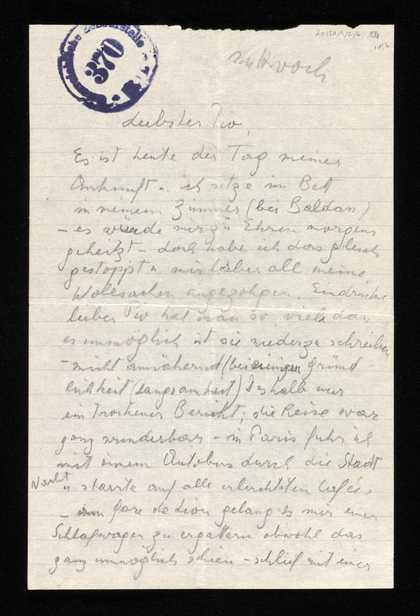 370
Mittwoch
Liebster Two,
Es ist heute der Tag meiner
Ankunft u. ich sitze im Bett
in meinem Zimmer (bei Baldan)
– es wurde mir zu Ehren morgens
geheizt – doch habe ich das gleich
gestoppt u mir lieber all meine
Wollsachen angezogen. Eindrücke
lieber Two hat man so viele dass
es unmöglich ist sie niederzuschreiben
– nicht annähernd (bei einigen Gründ
lichkeit (Langsamkeit) deshalb nur
ein trockener Bericht; die Reise war
ganz wunderbar – in Paris fuhr ich
mit einem Autobus durch die Stadt
Nachts
u starrte auf alle erleuchteten Cafés.
– am Gare de Lion gelang es mir einen
Schlafwagen zu ergattern obwohl das
ganz unmöglich schien – schlief mit einer